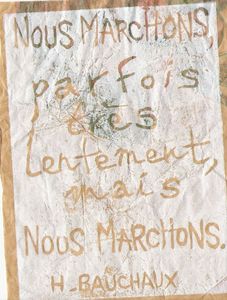 NOUS MARCHONS,
parfois
très
lentement,
mais
NOUS MARCHONS.
H-BAUCHAUX